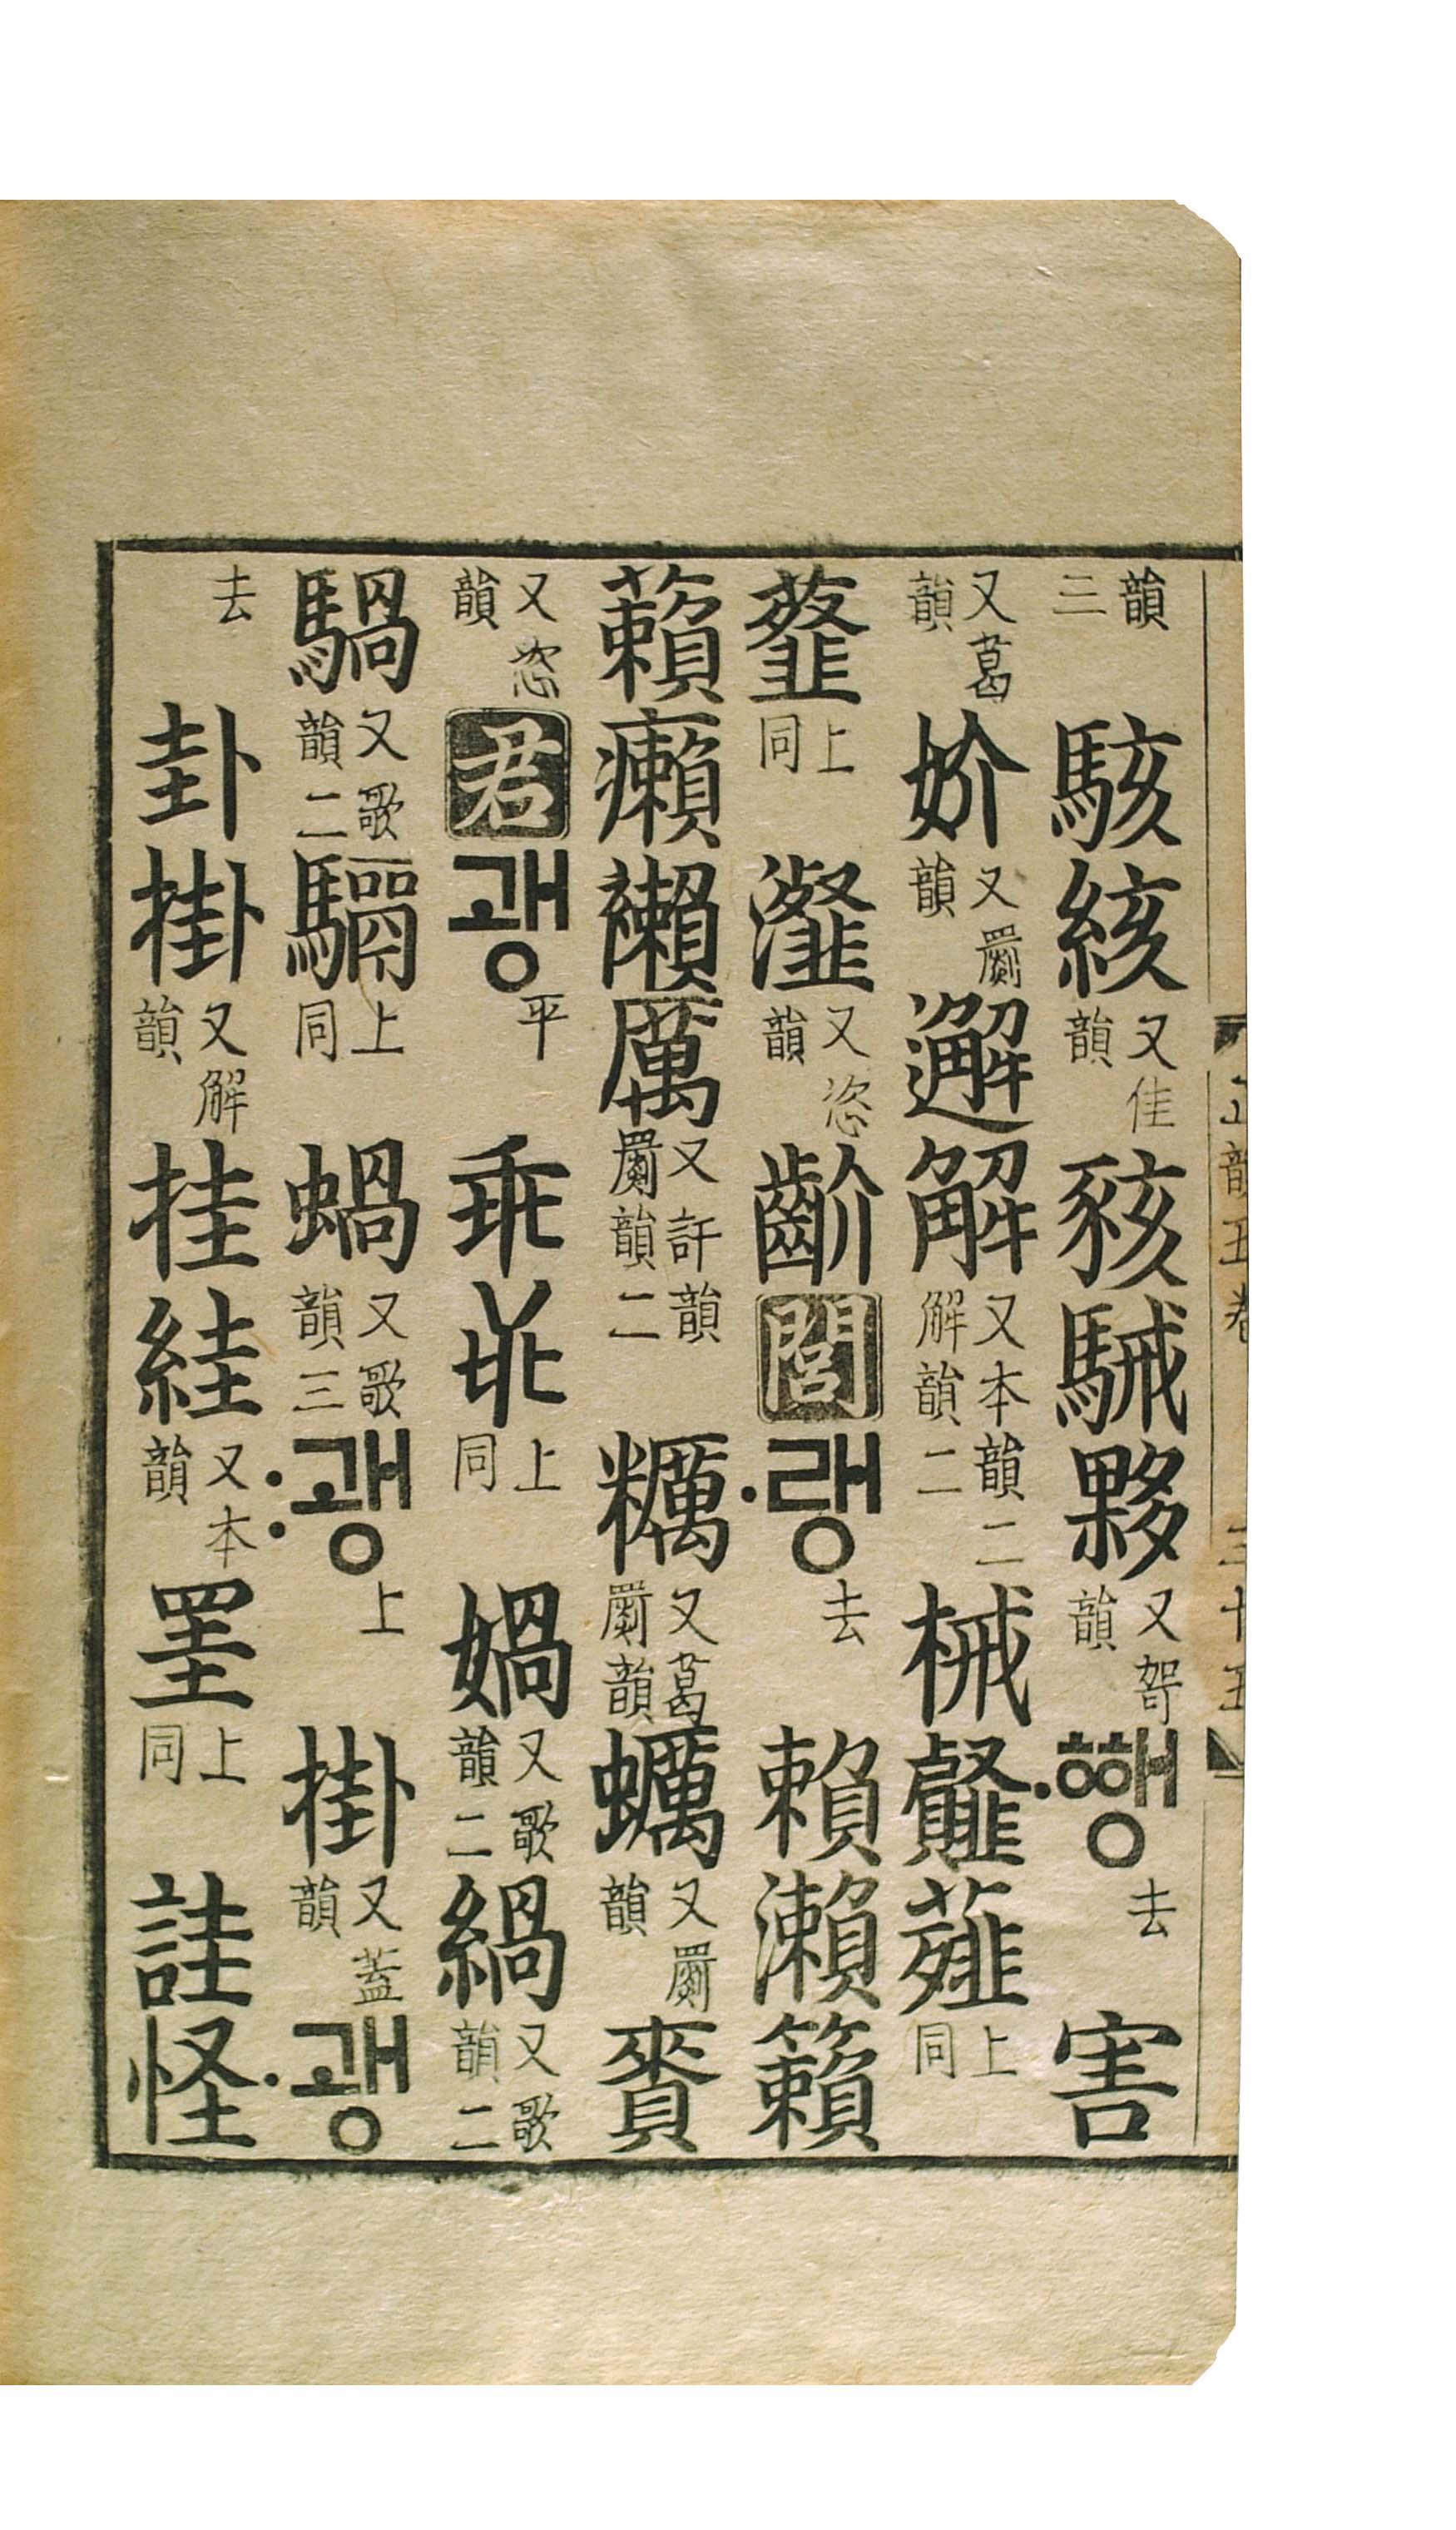 正韻五卷 三十五
韻三駭絯又佳韻豥駴夥又哿韻〮ᅘᅢᆼ去害
又葛韻妎又罽韻邂解又本韻二解韻二械薤上同
上同瀣又恣韻齘閭〮랭去賴瀨籟
藾癩襰厲又訐韻罽韻二糲又葛罽韻蠣又罽韻賚
又恣韻君괭平乖上同媧又歌韻二緺又歌韻二
騧又歌韻二上同蝸又歌韻三〯괭上掛又蓋韻〮괭
去卦掛又解韻挂絓又本韻罣上同詿怪